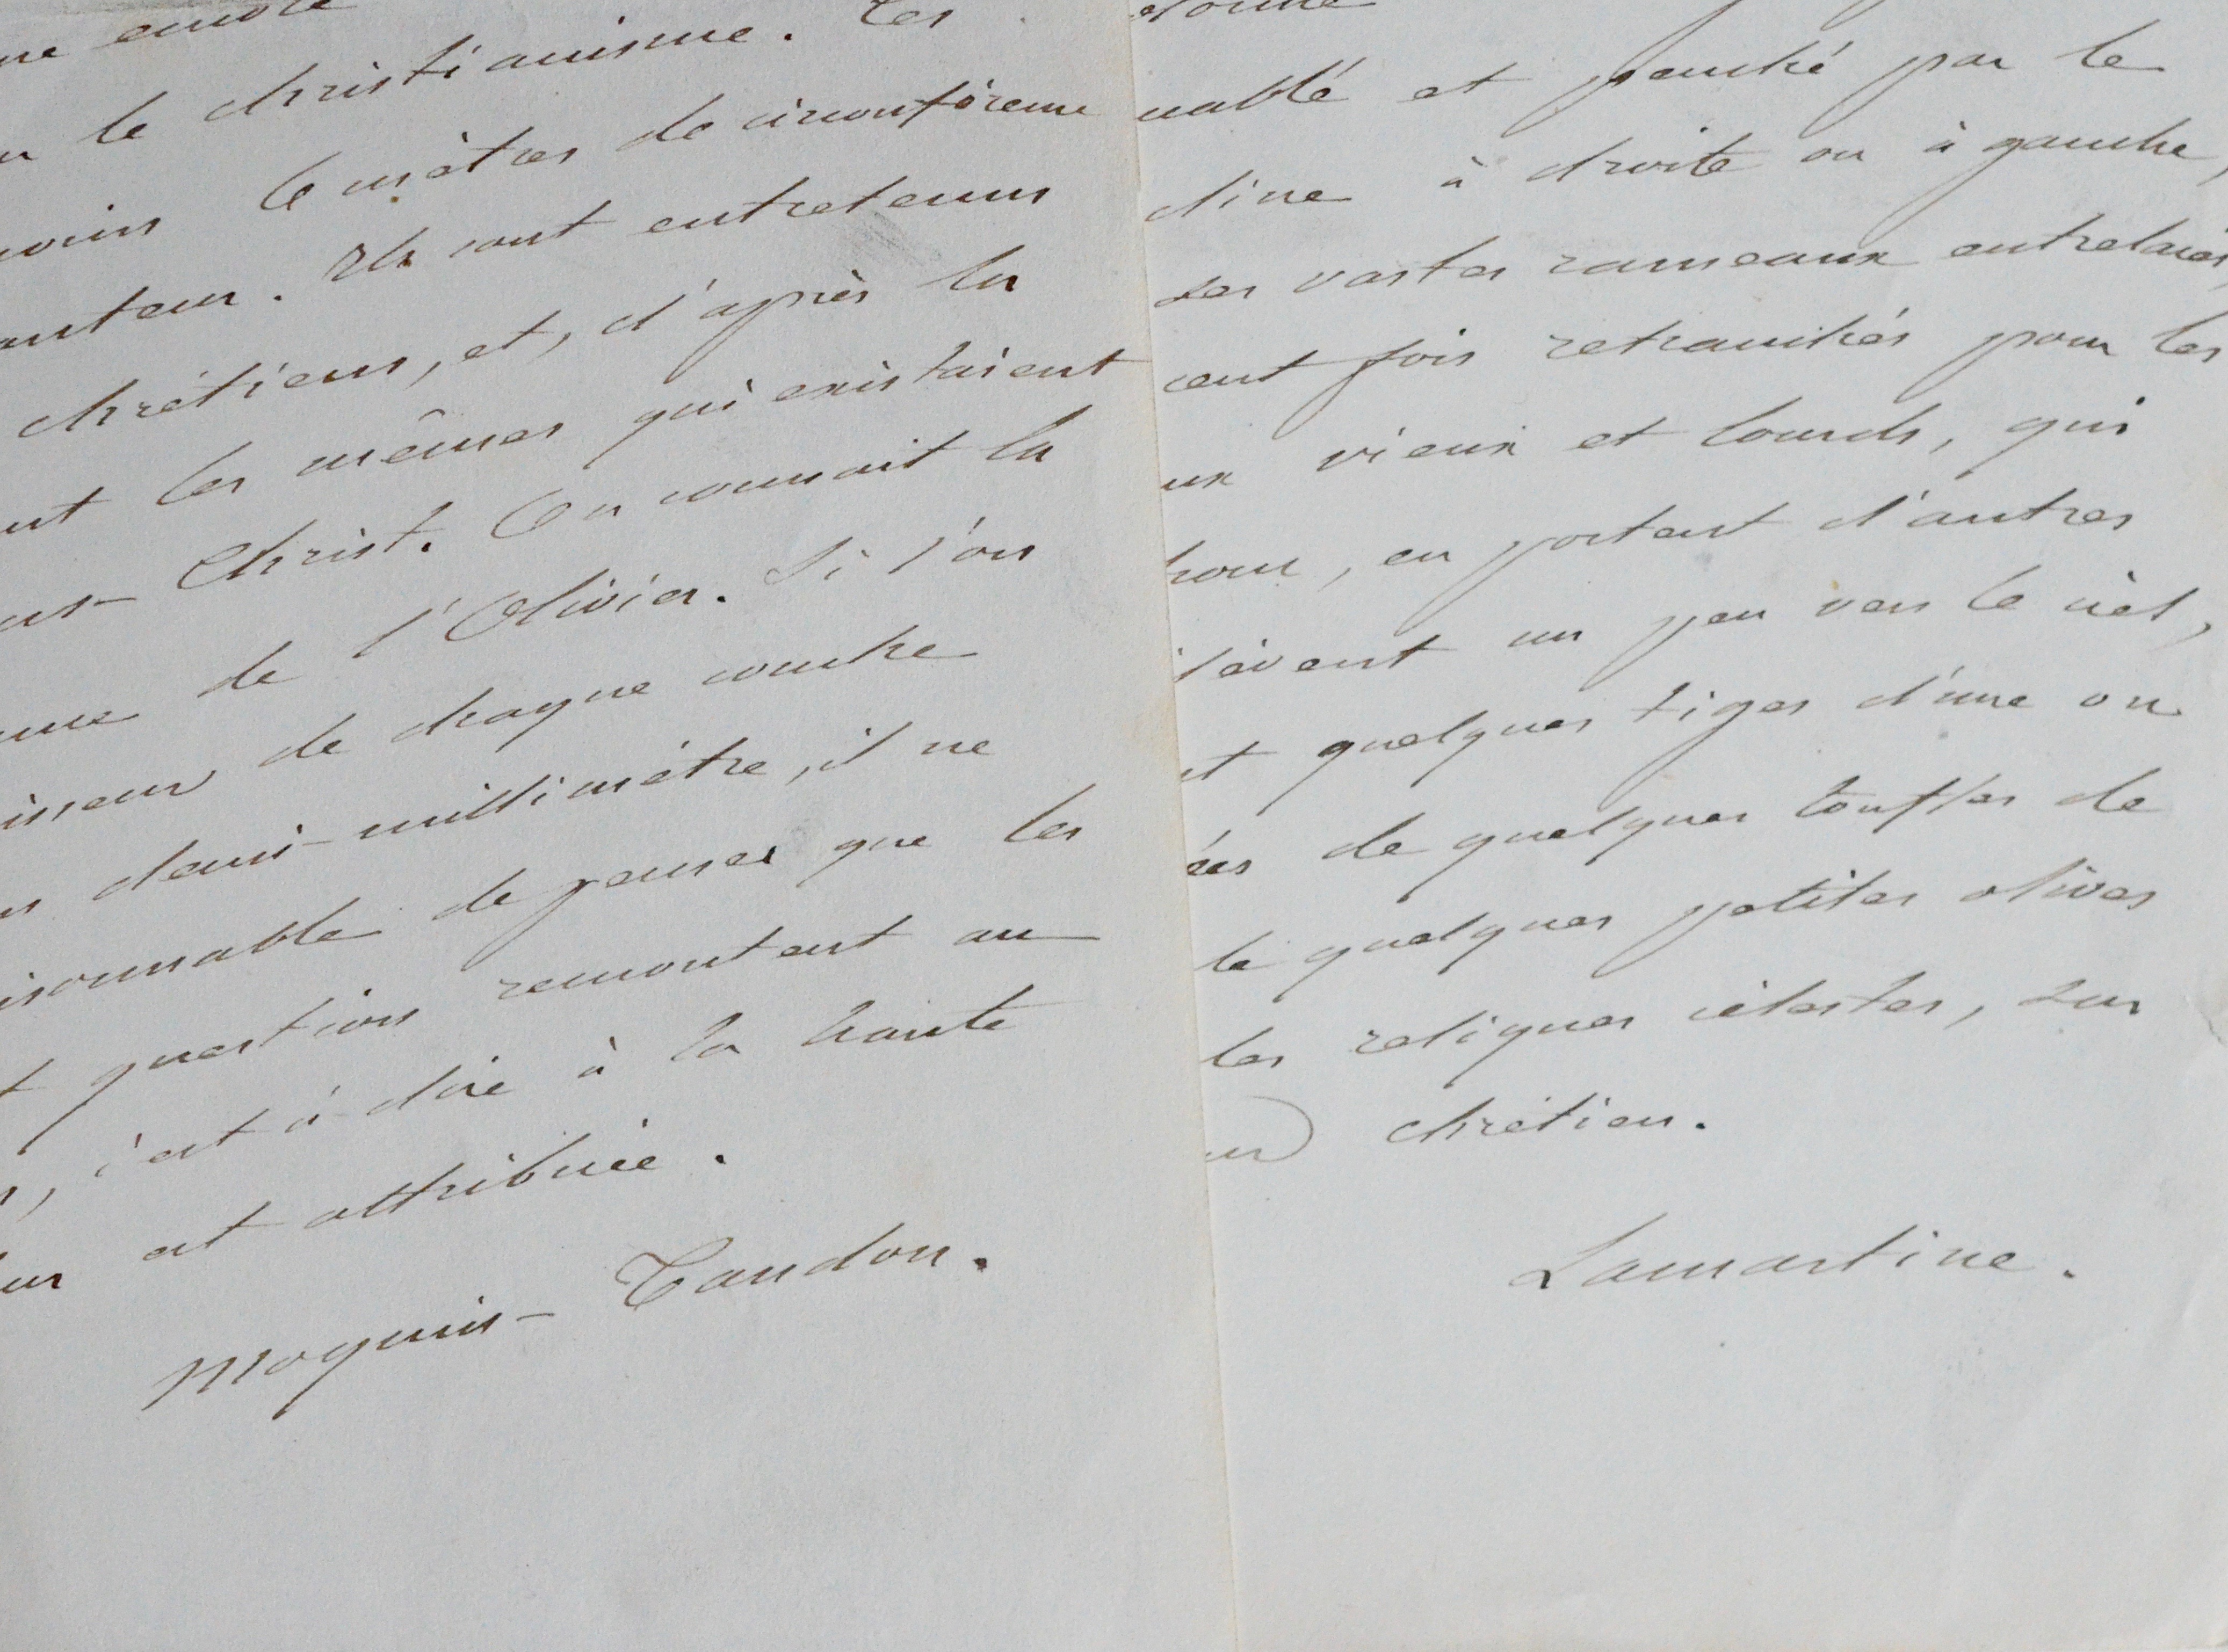 le christianisme. Les
6 mètres de circonférence
Ils sont entretenus
chrétiens, et, d'après la
les mêmes qui existaient
Christ. On connait la
de l'Olivier. Si l'on
de chaque couche
demi-millimètre, il ne
de penser que les
question remontent au
c'est à dire à la haute
est attribuée.
Moquin-Tandon.
et penché par le
à droite ou à gauche,
Ses vastes rameaux entrelacés,
cent fois retranchés pour les
vieux et lourds, qui
en portant d'autres
un peu vers le ciel,
quelques tiges d'une ou
de quelques touffes de
de quelques petites olives
les reliques célestes, sur
chrétien.
Lamartine.